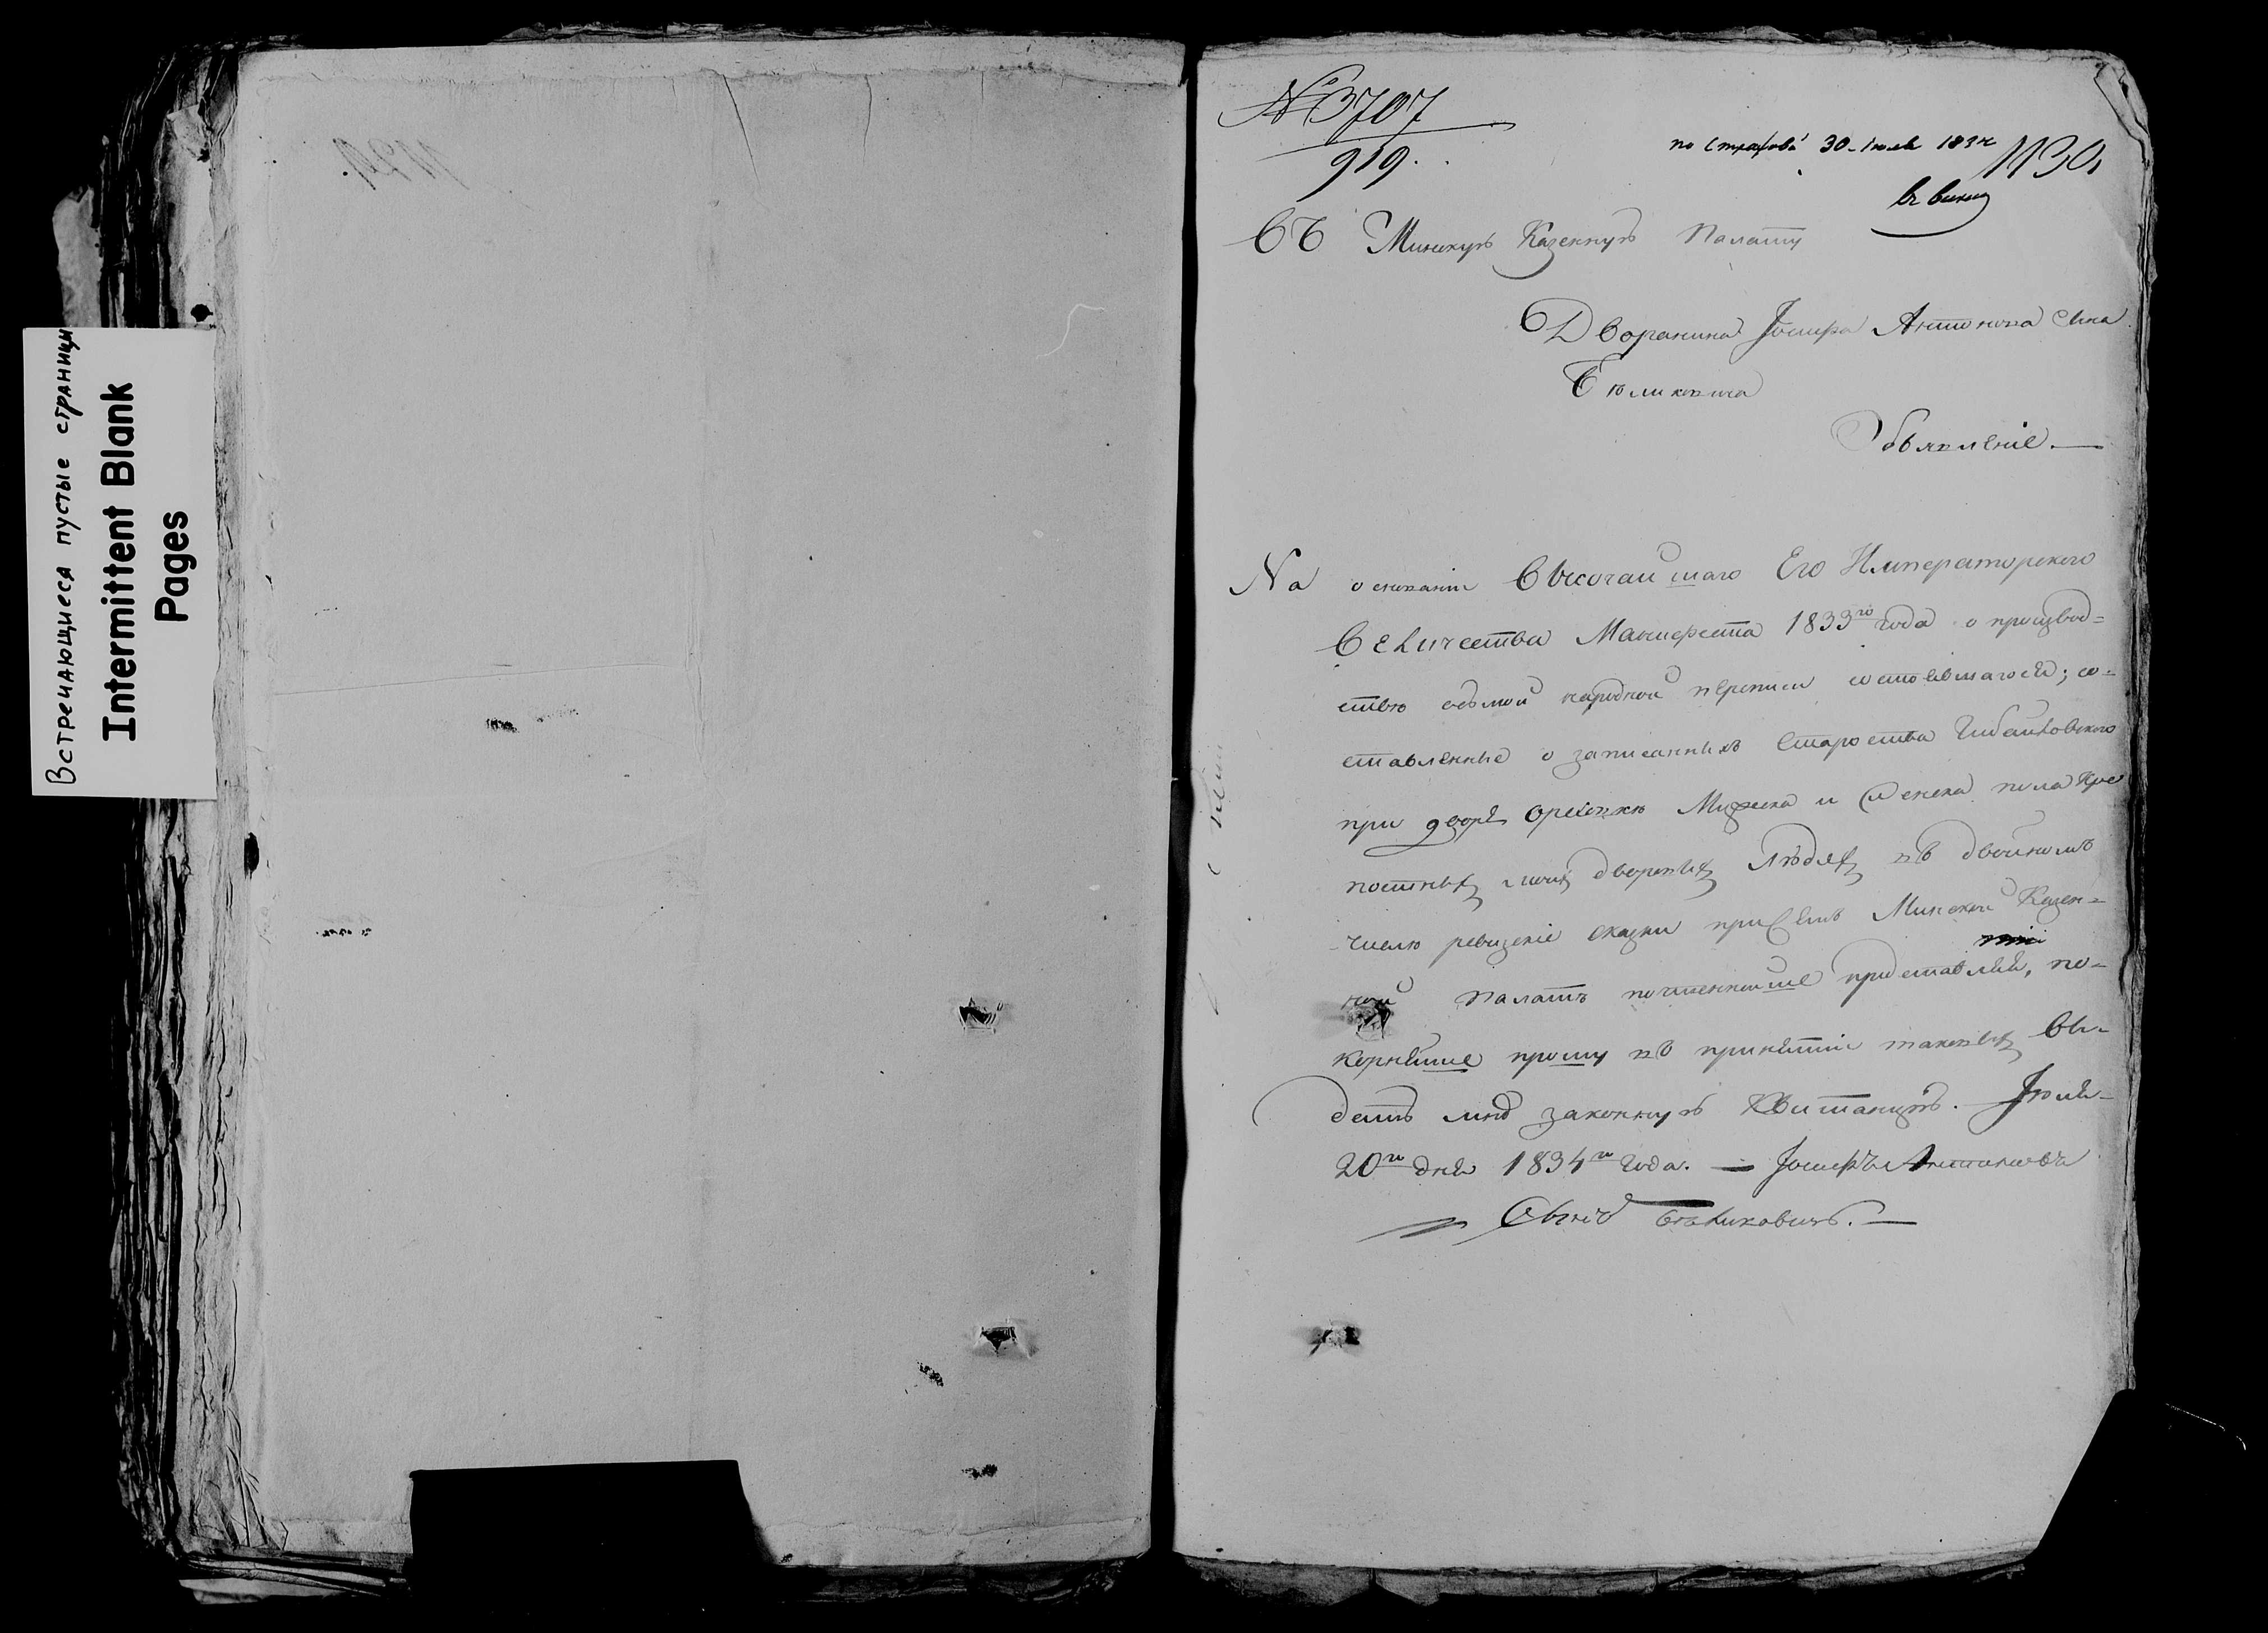 Встречающиеся пустые страницы
Intermittent Blank
Pages
№ 3707
919.
30 Июля 1834
1130
Въ Минскую Казенную Палату
Дворянина Іосифа Антонова Сына
Бѣликовича
Объявленіе.—
На основаніи Высочайшаго Его Императорского
Величества Манифеста 1833го года о производ=
ствѣ седьмой народной переписи состоявшагося; со=
ставленные о записанныхъ Староства
при дворѣ Мужеска и Женска пола Кре
постныхъ моихъ дворныхъ Людяхъ въ двойномъ
числѣ ревизскіе сказки при семъ Минской Казен=
ной Палатѣ почтеннейше представляя, по=
корнейше прошу въ принятіи таковыхъ Вы=
дать мнѣ законную Квитанцію. Июля
20го дня 1834го года. — Іосифъ Антоновъ
Сынъ Бѣликовичъ.—